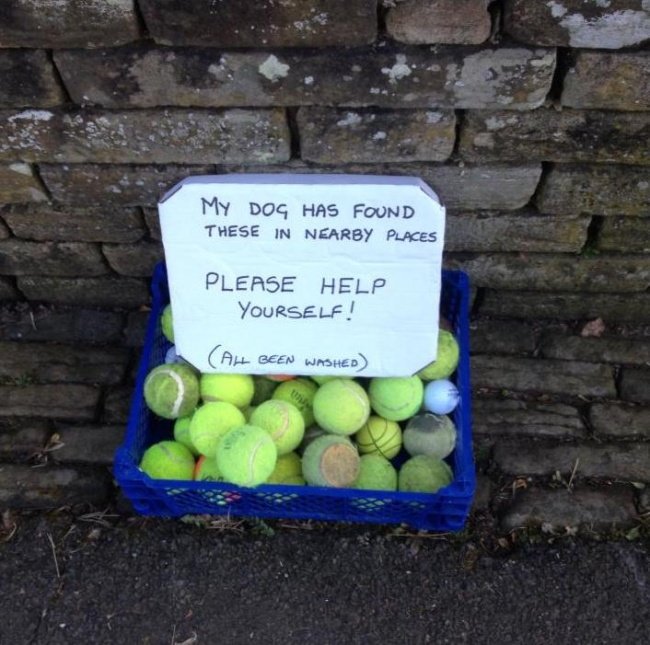 MY DOG HAS FOUND
THESE IN NEARBY PLACES
PLEASE HELP
YOURSELF!
(ALL BEEN WASHED)